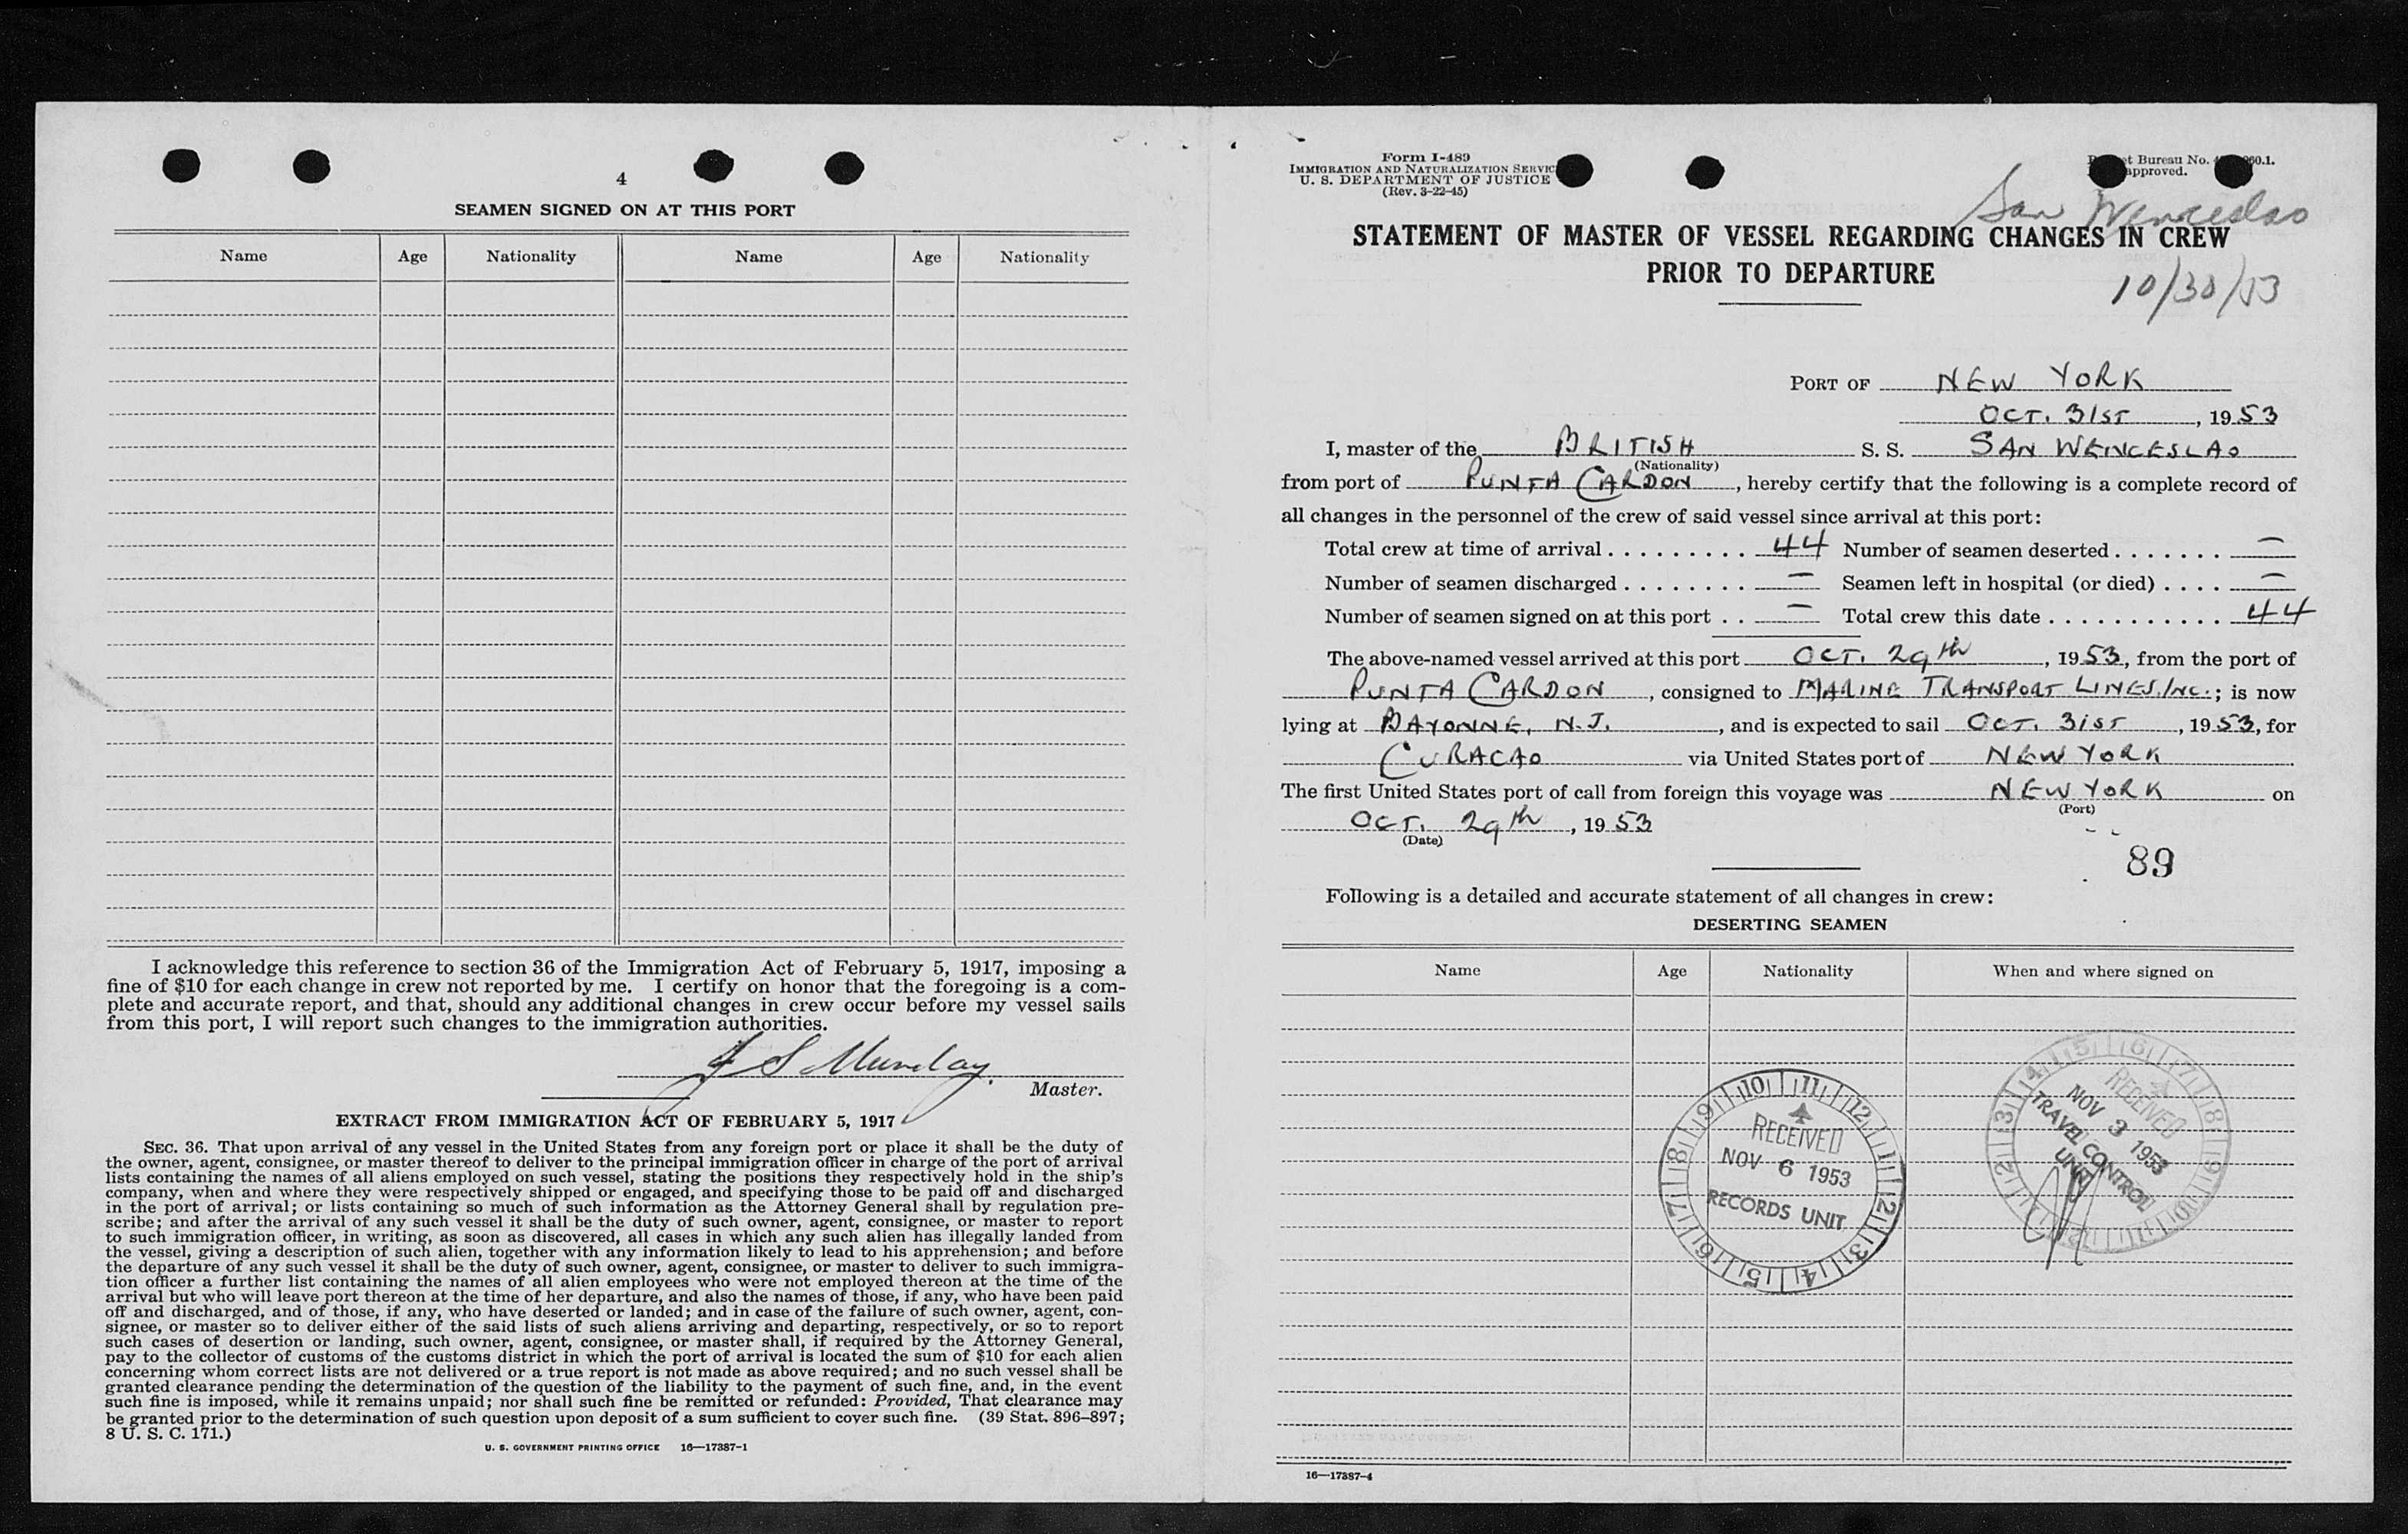 4
SEAMEN SIGNED ON AT THIS PORT
Name Age Nationality Name Age Nationality
I acknowledge this reference to section 36 of the Immigration Act of February 5, 1917, imposing a
fine of $10 for each change in crew not reported by me. I certify on honor that the foregoing is a com-
plete and accurate report, and that, should any additional changes in crew occur before my vessel sails
from this port, I will report such changes to the immigration authorities.
J S Munday.
Master.
EXTRACT FROM IMMIGRATION ACT OF FEBRUARY 5, 1917
SEC. 36. That upon arrival of any vessel in the United States from any foreign port or place it shall be the duty of
the owner, agent, consignee, or master thereof to deliver to the principal immigration officer in charge of the port of arrival
lists containing the names of all aliens employed on such vessel, stating the positions they respectively hold in the ship's
company, when and where they were respectively shipped or engaged, and specifying those to be paid off and discharged
in the port of arrival; or lists containing so much of such information as the Attorney General shall by regulation pre-
scribe; and after the arrival of any such vessel it shall be the duty of such owner, agent, consignee, or master to report
to such immigration officer, in writing, as soon as discovered, all cases in which any such alien has illegally landed from
the vessel, giving a description of such alien, together with any information likely to lead to his apprehension; and before
the departure of any such vessel it shall be the duty of such owner, agent, consignee, or master to deliver to such immigra-
tion officer a further list containing the names of all alien employees who were not employed thereon at the time of the
arrival but who will leave port thereon at the time of her departure, and also the names of those, if any, who have been paid
off and discharged, and of those, if any, who have deserted or landed; and in case of the failure of such owner, agent, con-
signee, or master so to deliver either of the said lists of such aliens arriving and departing, respectively, or so to report
such cases of desertion or landing, such owner, agent, consignee, or master shall, if required by the Attorney General,
pay to the collector of customs of the customs district in which the port of arrival is located the sum of $10 for each alien
concerning whom correct lists are not delivered or a true report is not made as above required; and no such vessel shall be
granted clearance pending the determination of the question of the liability to the payment of such fine, and, in the event
such fine is imposed, while it remains unpaid; nor shall such fine be remitted or refunded: Provided, That clearance may
be granted prior to the determination of such question upon deposit of a sum sufficient to cover such fine. (39 Stat. 896–897;
8 U. S. C. 171.)
U. S. GOVERNMENT PRINTING OFFICE 16—17387-1
Form I-489
IMMIGRATION AND NATURALIZATION SERVIC
U. S. DEPARTMENT OF JUSTICE
(Rev. 3-22-45)
Bureau No.
approved.
San Wenceslao
STATEMENT OF MASTER OF VESSEL REGARDING CHANGES IN CREW
PRIOR TO DEPARTURE
10/30/53
PORT OF NEW YORK
OCT. 31ST, 1953
I, master of the BRITISH S. S. SAN WENCESLAO
(Nationality)
from port of PUNTA CARDON, hereby certify that the following is a complete record of
all changes in the personnel of the crew of said vessel since arrival at this port:
Total crew at time of arrival . . . . . . . . . 44 Number of seamen deserted . . . . . . . —
Number of seamen discharged . . . . . . . . — Seamen left in hospital (or died) . . . . —
Number of seamen signed on at this port . . — Total crew this date . . . . . . . . . . . 44
The above-named vessel arrived at this port OCT. 29th, 1953, from the port of
PUNTA CARDON, consigned to MARINE TRANSPORT LINES. INC.; is now
lying at BAYONNE, N.J., and is expected to sail OCT. 31ST, 1953, for
CURACAO via United States port of NEW YORK.
The first United States port of call from foreign this voyage was NEW YORK on
(Port)
OCT. 29th, 1953
(Date)
89
Following is a detailed and accurate statement of all changes in crew:
DESERTING SEAMEN
Name Age Nationality When and where signed on
10 11 12 1 2 3 4 5 6 7 8 9
RECEIVED
NOV 6 1953
RECORDS UNIT
5 6 7 8 9 10 11 12 1 2 3 4
RECEIVED
NOV 3 1953
TRAVEL CONTROL
UNIT
16—17387-4